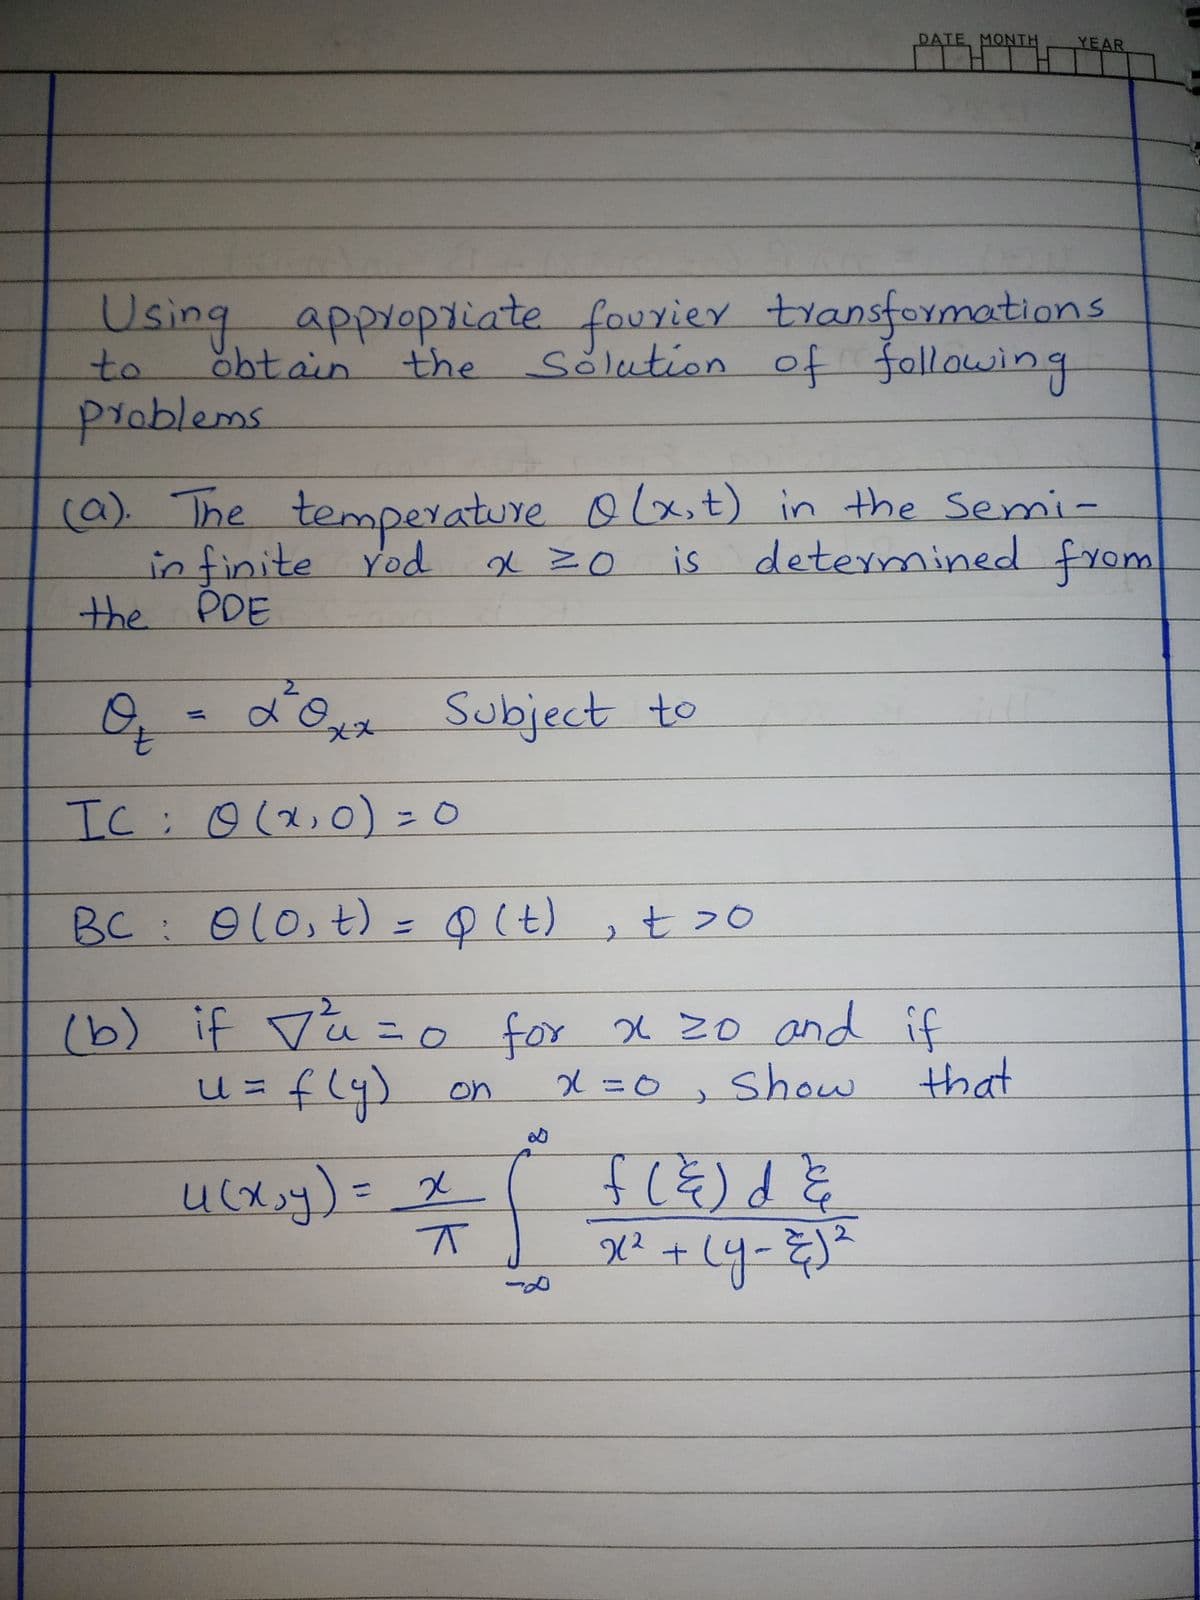 DATE MONTH YEAR
Using appropriate fourier transformations
to obtain the Solution of following
problems
(a). The temperature θ(x,t) in the Semi-
infinite rod x ≥0 is determined from
the PDE
θ_t = α²θ_xx Subject to
IC : θ(x,0) = 0
BC : θ(0,t) = φ(t) , t >0
(b) if ∇²u = 0 for x ≥0 and if
u = f(y) on x = 0 , Show that
u(x,y) = x/π ∫_{-∞}^{∞} f(ξ)dξ / x² + (y-ξ)²